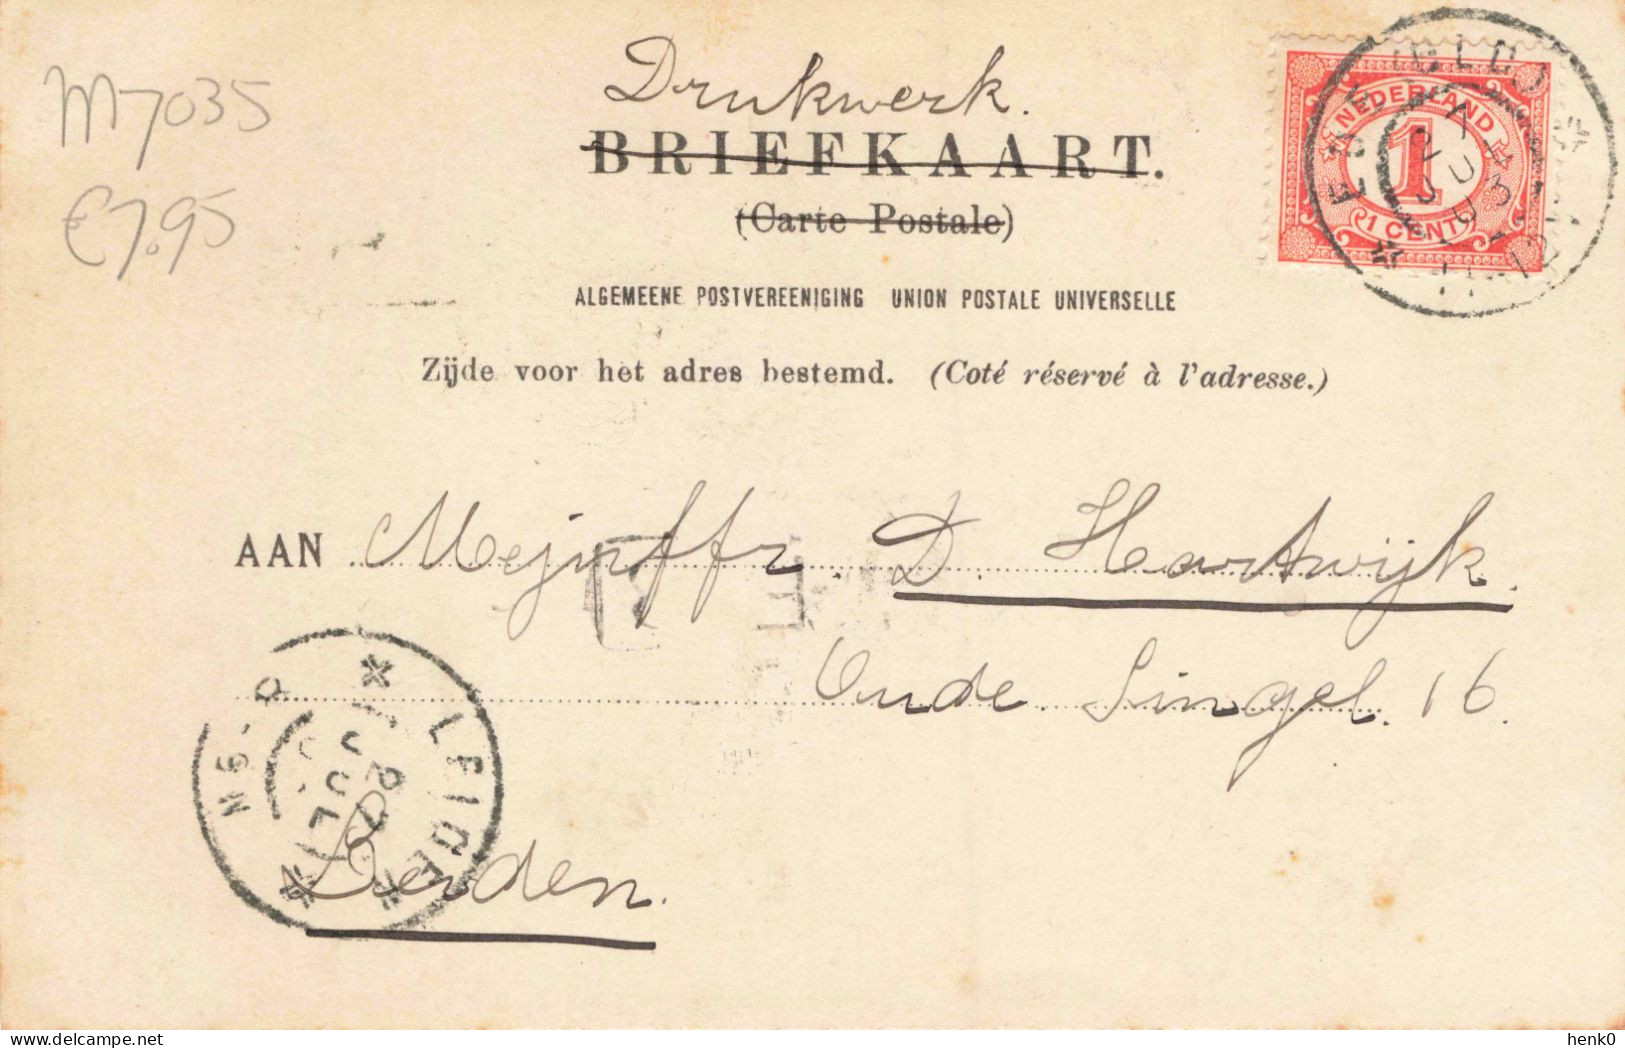 M7035
€7.95
Drukwerk.
BRIEFKAART.
(Carte Postale)
ALGEMEENE POSTVEREENIGING UNION POSTALE UNIVERSELLE
Zijde voor het adres bestemd. (Coté réservé à l'adresse.)
NEDERLAND
1
1 CENT
AAN Mejuffr. D. Hartwijk.
Oude Singel. 16.
LEIDEN
Leiden.
henk0